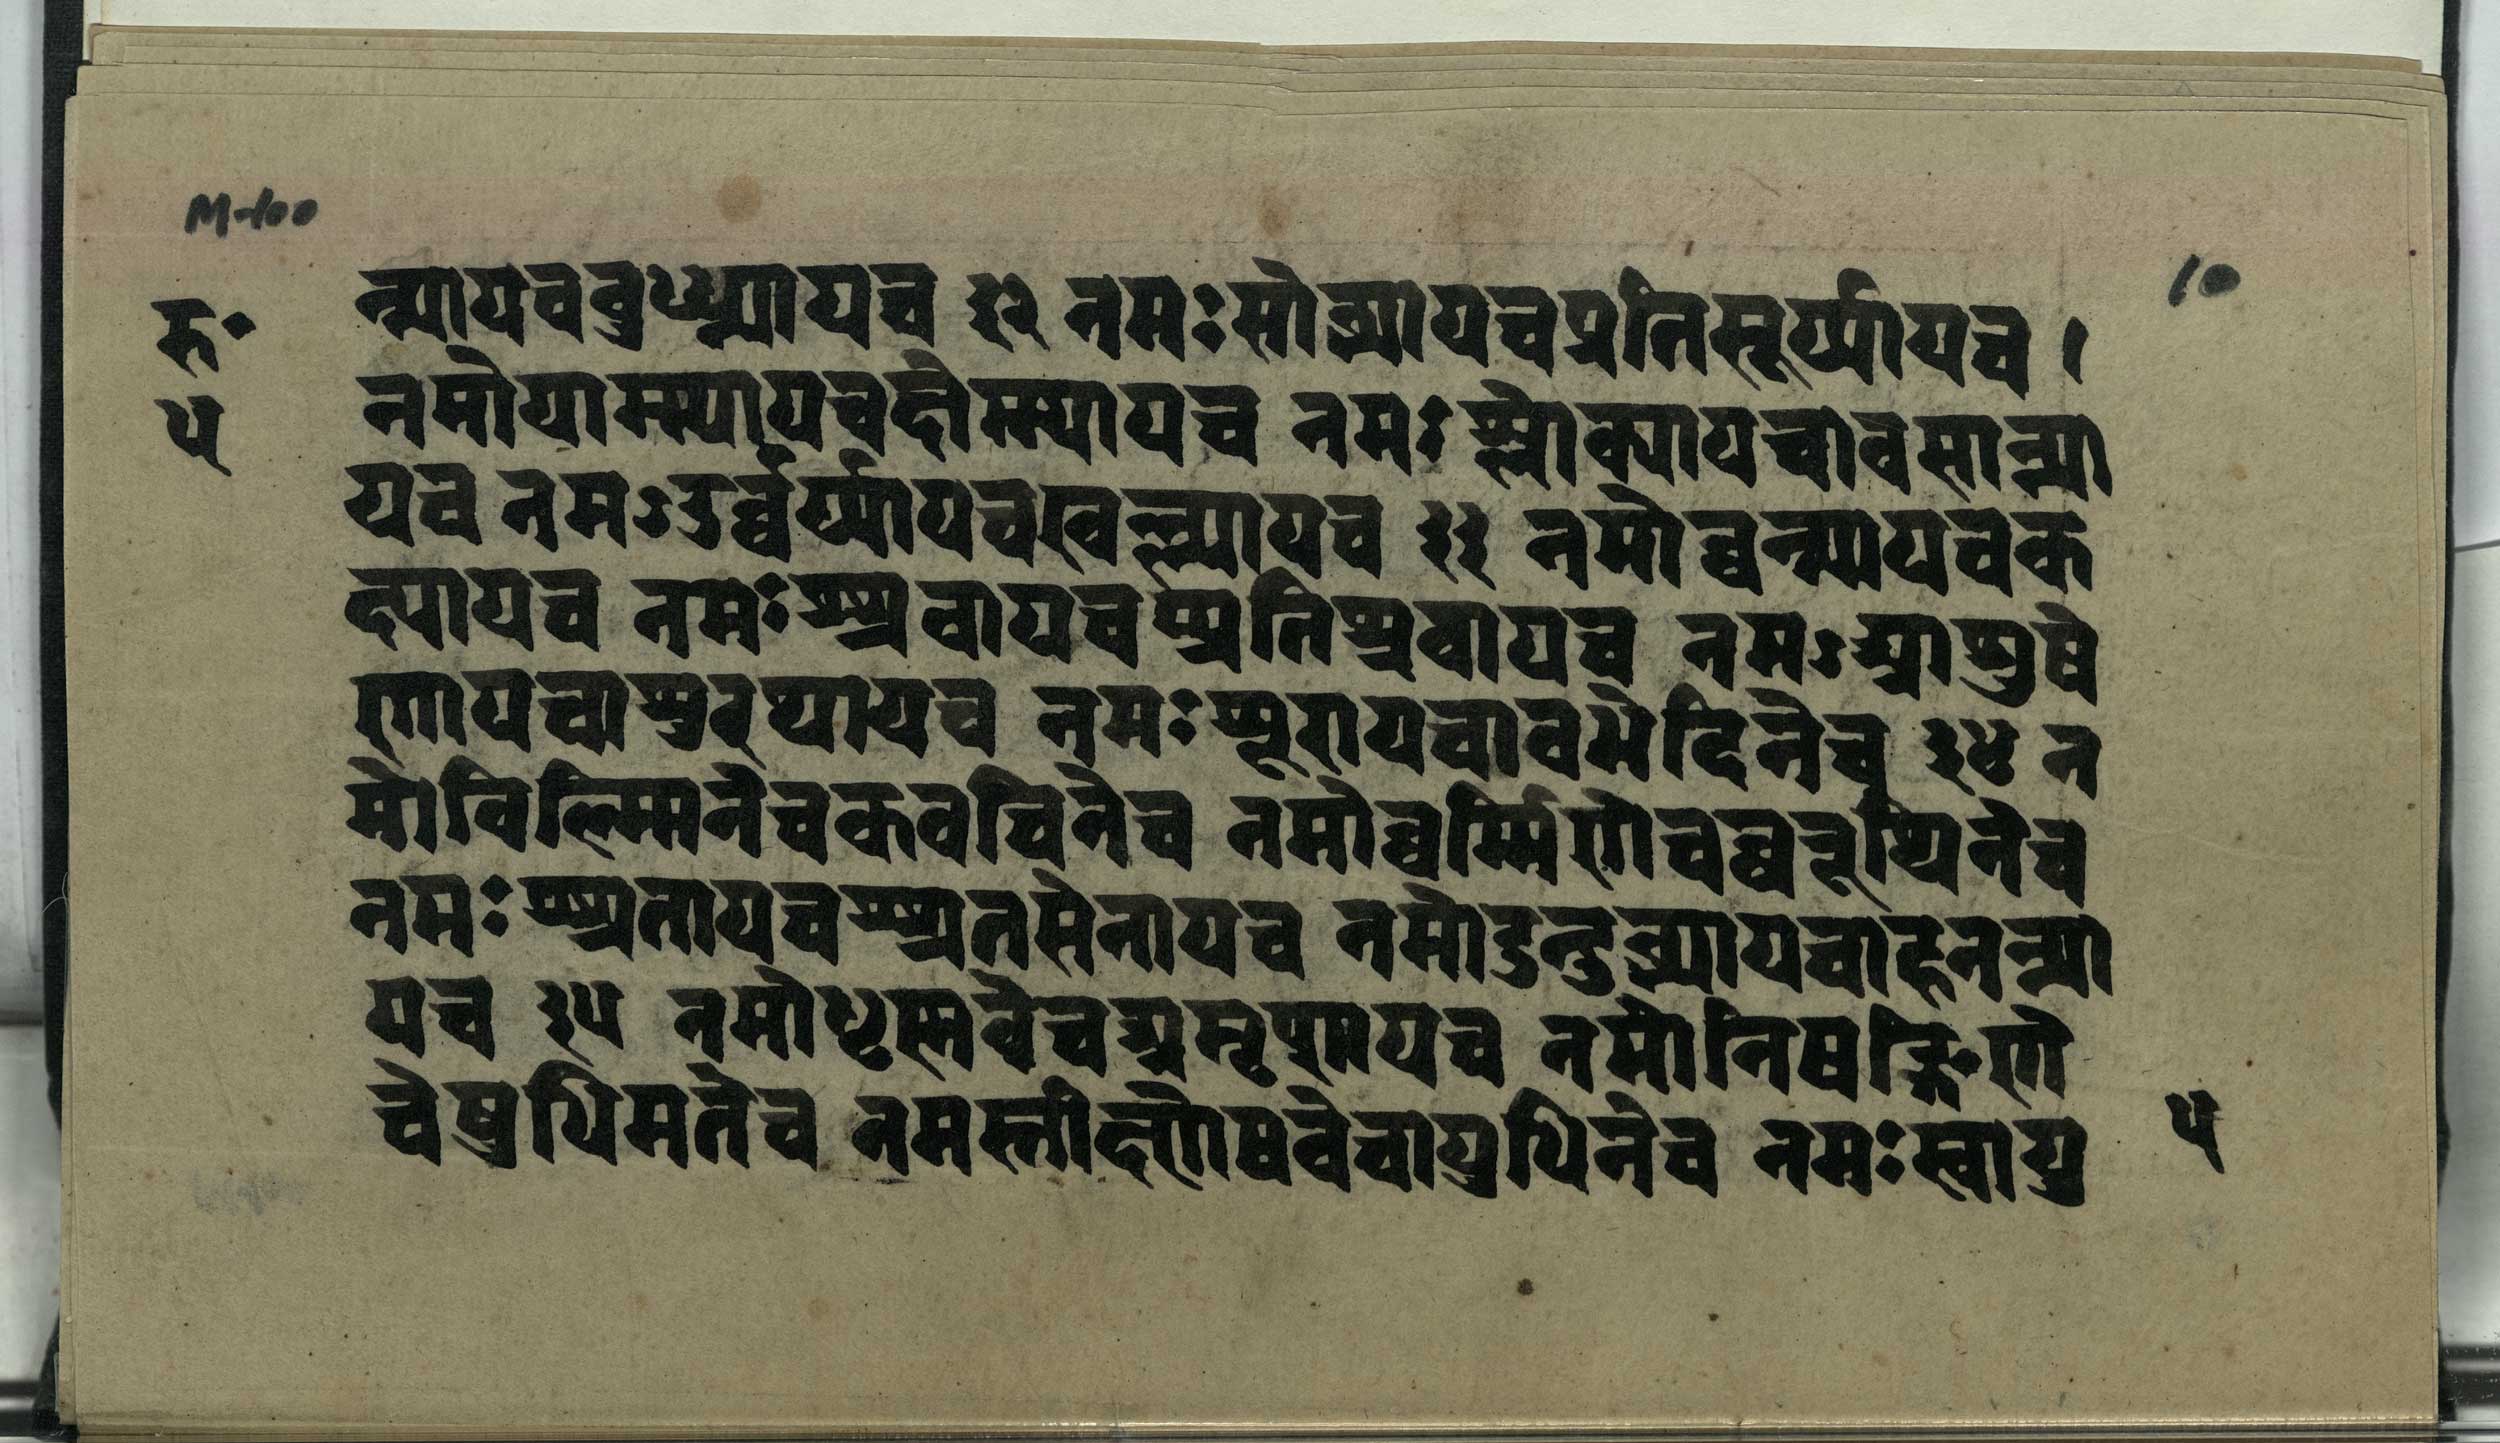 M-100
10
रु॰
५
न्यायचबुध्न्यायच ३२ नमःसोभ्यायचप्रतिसूर्य्यायच ।
नमोयाम्यायचक्षेम्यायच नमःश्लोक्यायचावसान्या
यच नमऽउर्व्वर्य्यायचखल्ल्यायच ३३ नमोव्वन्यायचक
क्ष्यायच नमःश्श्रवायचप्प्रतिश्श्रवायच नमऽआशुषे
णायचाशुरथायच नमःशूरायचावभेदिनेच ३४ न
मोबिल्म्मिनेचकवचिनेच नमोव्वर्म्मिणेचव्वरूथिनेच
नमःश्श्रुतायचश्श्रुतसेनायच नमोदुन्दुभ्यायचाहनन्या
यच ३५ नमोधृष्णवेचप्रमृशायच नमोनिषङ्गिणे
चेषुधिमतेच नमस्तीक्ष्णेषवेचायुधिनेच नमःस्वायु
५